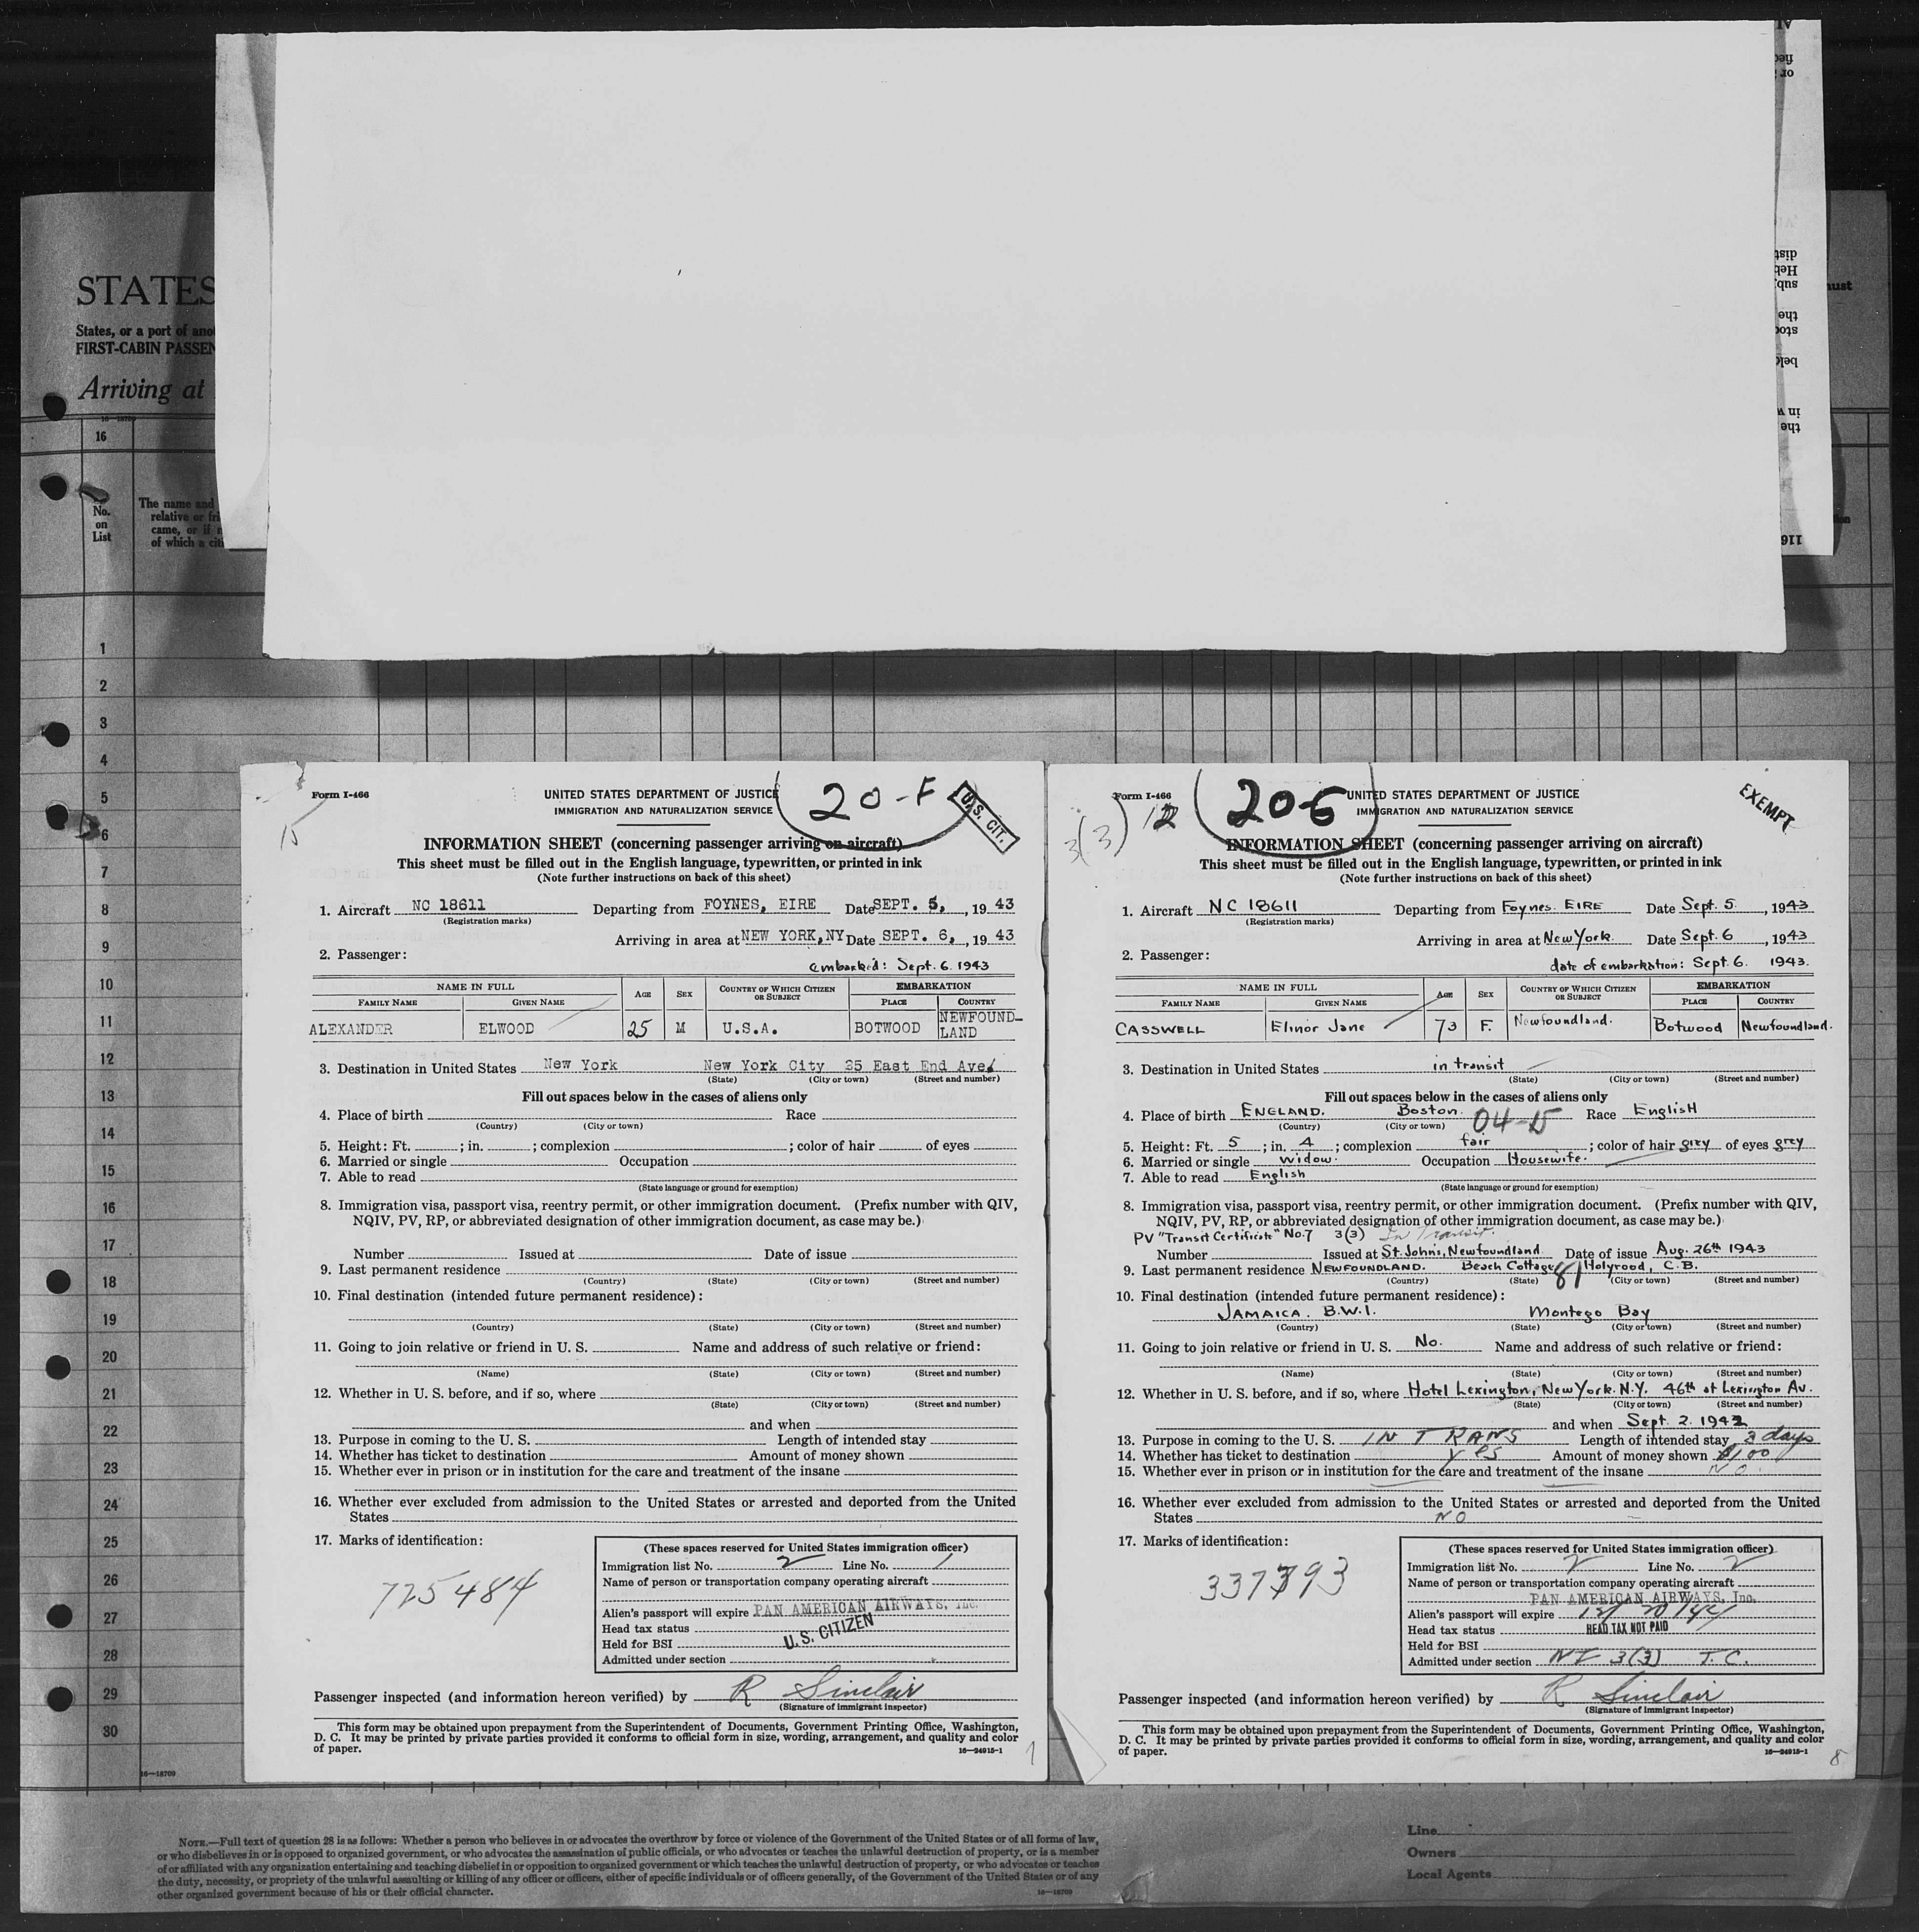 STATES
States, or a port of
FIRST-CABIN
Arriving at
16—18709
16
No.
on
List
The name and
relative or
came, or if
of which a
1
2
3
4
5
6
7
8
9
10
11
12
13
14
15
16
17
18
19
20
21
22
23
24
25
26
27
28
29
30
16—18709
15
Form I-466
UNITED STATES DEPARTMENT OF JUSTICE
IMMIGRATION AND NATURALIZATION SERVICE
20-F
U.S. CIT.
INFORMATION SHEET (concerning passenger arriving on aircraft)
This sheet must be filled out in the English language, typewritten, or printed in ink
(Note further instructions on back of this sheet)
1. Aircraft NC 18611 Departing from FOYNES, EIRE Date SEPT. 5, , 19 43
(Registration marks)
Arriving in area at NEW YORK,NY Date SEPT. 6, , 19 43
2. Passenger:
embarked: Sept. 6. 1943
NAME IN FULL AGE SEX COUNTRY OF WHICH CITIZEN OR SUBJECT EMBARKATION
FAMILY NAME GIVEN NAME PLACE COUNTRY
ALEXANDER ELWOOD 25 M U.S.A. BOTWOOD NEWFOUND-LAND
3. Destination in United States New York New York City 25 East End Ave.
(State) (City or town) (Street and number)
Fill out spaces below in the cases of aliens only
4. Place of birth Race
(Country) (City or town)
5. Height: Ft. ; in. ; complexion ; color of hair of eyes
6. Married or single Occupation
7. Able to read
(State language or ground for exemption)
8. Immigration visa, passport visa, reentry permit, or other immigration document. (Prefix number with QIV,
NQIV, PV, RP, or abbreviated designation of other immigration document, as case may be.)
Number Issued at Date of issue
9. Last permanent residence
(Country) (State) (City or town) (Street and number)
10. Final destination (intended future permanent residence):
(Country) (State) (City or town) (Street and number)
11. Going to join relative or friend in U. S. Name and address of such relative or friend:
(Name) (State) (City or town) (Street and number)
12. Whether in U. S. before, and if so, where
(State) (City or town) (Street and number)
and when
13. Purpose in coming to the U. S. Length of intended stay
14. Whether has ticket to destination Amount of money shown
15. Whether ever in prison or in institution for the care and treatment of the insane
16. Whether ever excluded from admission to the United States or arrested and deported from the United
States
17. Marks of identification:
725484
(These spaces reserved for United States immigration officer)
Immigration list No. 2 Line No. 1
Name of person or transportation company operating aircraft
PAN AMERICAN AIRWAYS, Inc.
Alien's passport will expire
Head tax status
U.S. CITIZEN
Held for BSI
Admitted under section
Passenger inspected (and information hereon verified) by R Sinclair
(Signature of immigrant inspector)
This form may be obtained upon prepayment from the Superintendent of Documents, Government Printing Office, Washington,
D. C. It may be printed by private parties provided it conforms to official form in size, wording, arrangement, and quality and color
of paper.
16—24915-1
7
Form I-466
3(3) 12
20-G
UNITED STATES DEPARTMENT OF JUSTICE
IMMIGRATION AND NATURALIZATION SERVICE
EXEMPT
INFORMATION SHEET (concerning passenger arriving on aircraft)
This sheet must be filled out in the English language, typewritten, or printed in ink
(Note further instructions on back of this sheet)
1. Aircraft NC 18611 Departing from Foynes. EIRE Date Sept. 5 , 1943
(Registration marks)
Arriving in area at New York Date Sept. 6 , 1943
2. Passenger:
date of embarkation: Sept 6. 1943.
NAME IN FULL AGE SEX COUNTRY OF WHICH CITIZEN OR SUBJECT EMBARKATION
FAMILY NAME GIVEN NAME PLACE COUNTRY
CASSWELL Elinor Jane 73 F. Newfoundland. Botwood Newfoundland.
3. Destination in United States in transit
(State) (City or town) (Street and number)
Fill out spaces below in the cases of aliens only
4. Place of birth ENGLAND. Boston. Race EnglisH
(Country) (City or town) 04-15
5. Height: Ft. 5 ; in. 4 ; complexion fair ; color of hair grey of eyes grey
6. Married or single widow. Occupation Housewife.
7. Able to read English
(State language or ground for exemption)
8. Immigration visa, passport visa, reentry permit, or other immigration document. (Prefix number with QIV,
NQIV, PV, RP, or abbreviated designation of other immigration document, as case may be.)
PV "Transit Certificate" No. 7 3(3) In Transit.
Number Issued at St. John's, Newfoundland Date of issue Aug. 26th 1943
9. Last permanent residence NEWFOUNDLAND. Beach Cottage 81 Holyrood, C.B.
(Country) (State) (City or town) (Street and number)
10. Final destination (intended future permanent residence):
JAMAICA. B.W.I. Montego Bay
(Country) (State) (City or town) (Street and number)
11. Going to join relative or friend in U. S. No. Name and address of such relative or friend:
(Name) (State) (City or town) (Street and number)
12. Whether in U. S. before, and if so, where Hotel Lexington, New York. N.Y. 46th at Lexington Av.
(State) (City or town) (Street and number)
and when Sept. 2. 1942
13. Purpose in coming to the U. S. IN TRANS Length of intended stay 3 days
14. Whether has ticket to destination Yes Amount of money shown
15. Whether ever in prison or in institution for the care and treatment of the insane NO.
16. Whether ever excluded from admission to the United States or arrested and deported from the United
States NO
17. Marks of identification:
337793
(These spaces reserved for United States immigration officer)
Immigration list No. 2 Line No. 2
Name of person or transportation company operating aircraft
PAN AMERICAN AIRWAYS, Inc.
Alien's passport will expire 12/20/44
Head tax status HEAD TAX NOT PAID
Held for BSI
Admitted under section 3(3) T.C.
Passenger inspected (and information hereon verified) by R Sinclair
(Signature of immigrant inspector)
This form may be obtained upon prepayment from the Superintendent of Documents, Government Printing Office, Washington,
D. C. It may be printed by private parties provided it conforms to official form in size, wording, arrangement, and quality and color
of paper.
16—24915-1
8
NOTE.—Full text of question 28 is as follows: Whether a person who believes in or advocates the overthrow by force or violence of the Government of the United States or of all forms of law,
or who disbelieves in or is opposed to organized government, or who advocates the assassination of public officials, or who advocates or teaches the unlawful destruction of property, or is a member
of or affiliated with any organization entertaining and teaching disbelief in or opposition to organized government or which teaches the unlawful destruction of property, or who advocates or teaches
the duty, necessity, or propriety of the unlawful assaulting or killing of any officer or officers, either of specific individuals or of officers generally, of the Government of the United States or of any
other organized government because of his or their official character.
16—18709
Line
Owners
Local Agents